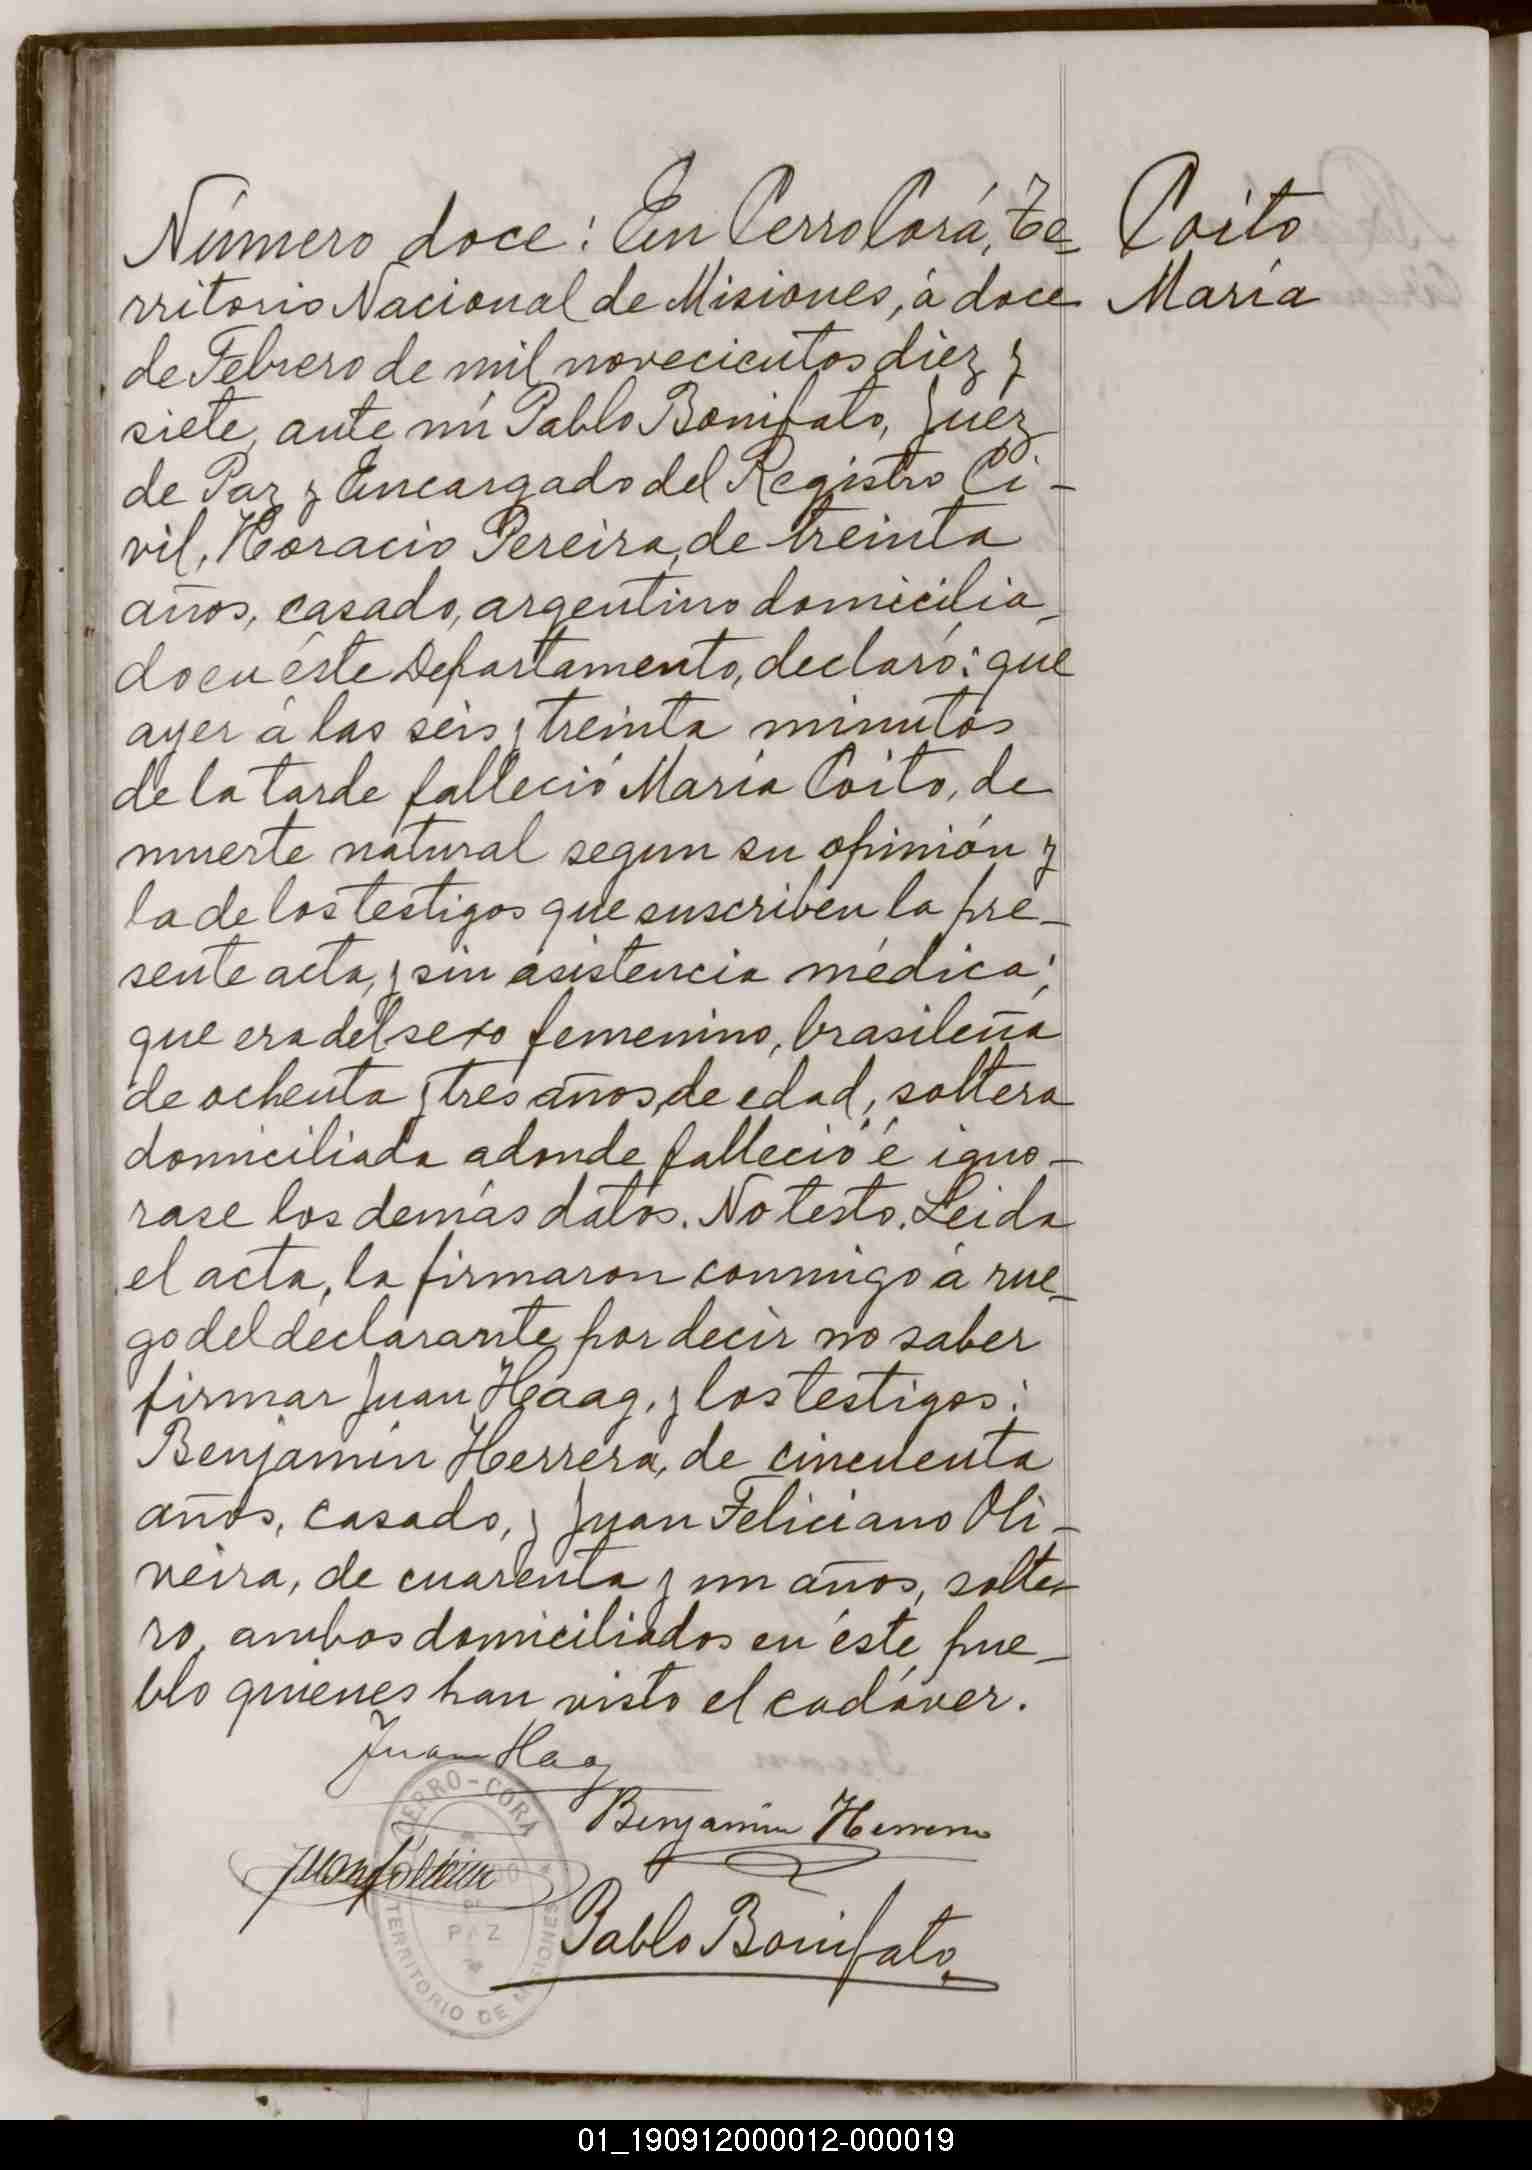 Número doce: En Cerro Corá, Te=
rritorio Nacional de Misiones, á doce
de Febrero de mil novecientos diez y
siete, ante mí Pablo Bonifato, Juez
de Paz y Encargado del Registro Ci-
vil, Horacio Pereira, de treinta
años, casado, argentino domicilia-
do en éste Departamento, declaró: que
ayer á las seis y treinta minutos
de la tarde falleció María Coito, de
muerte natural segun su opinión y
la de los testigos que suscriben la pre-
sente acta, y sin asistencia médica;
que era del sexo femenino, brasileña
de ochenta y tres años de edad, soltera
domiciliada adonde falleció é igno-
rase los demás datos. No testó. Leida
el acta, la firmaron conmigo á rue-
go del declarante por decir no saber
firmar Juan Haag, y los testigos:
Benjamín Herrera, de cincuenta
años, casado, y Juan Feliciano Oli-
veira, de cuarenta y un años, solte-
ro, ambos domiciliados en éste pue-
blo quienes han visto el cadáver.
Coito
María
Juan Haag
Benjamin Herrera
Pablo Bonifato
CERRO-CORA
PAZ
TERRITORIO DE MISIONES
01_190912000012-000019